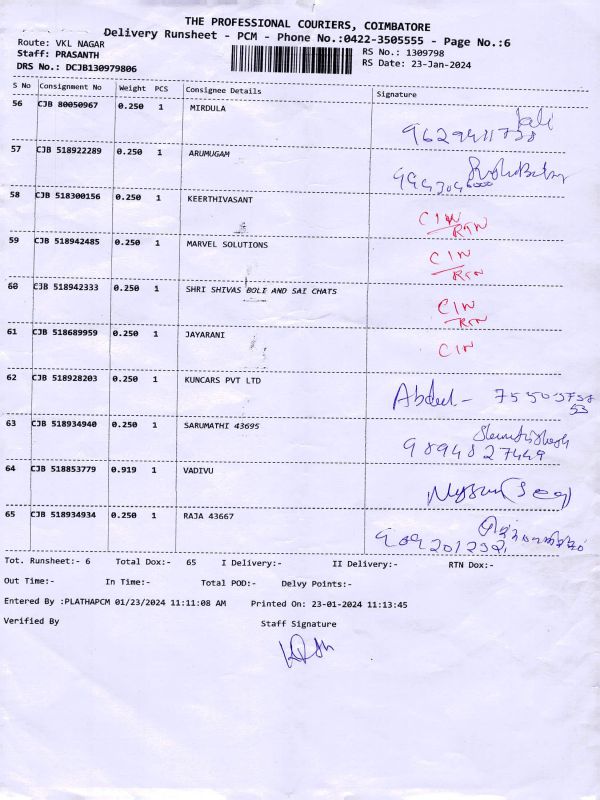 THE PROFESSIONAL COURIERS, COIMBATORE
Delivery Runsheet - PCM - Phone No.:0422-3505555 - Page No.:6
Route: VKL NAGAR
RS No.: 1309798
Staff: PRASANTH
RS Date: 23-Jan-2024
DRS No.: DCJB130979806
S No Consignment No Weight PCS Consignee Details Signature
56 CJB 80050967 0.250 1 MIRDULA
57 CJB 518922289 0.250 1 ARUMUGAM
58 CJB 518300156 0.250 1 KEERTHIVASANT CIN
RTN
59 CJB 518942485 0.250 1 MARVEL SOLUTIONS CIN
RTN
60 CJB 518942333 0.250 1 SHRI SHIVAS BOLI AND SAI CHATS CIN
RTN
61 CJB 518689959 0.250 1 JAYARANI CIN
62 CJB 518928203 0.250 1 KUNCARS PVT LTD Abdul -
63 CJB 518934940 0.250 1 SARUMATHI 43695
9894827449
64 CJB 518853779 0.919 1 VADIVU
65 CJB 518934934 0.250 1 RAJA 43667
Tot. Runsheet:- 6 Total Dox:- 65 I Delivery:- II Delivery:- RTN Dox:-
Out Time:- In Time:- Total POD:- Delvy Points:-
Entered By :PLATHAPCM 01/23/2024 11:11:08 AM Printed On: 23-01-2024 11:13:45
Verified By Staff Signature